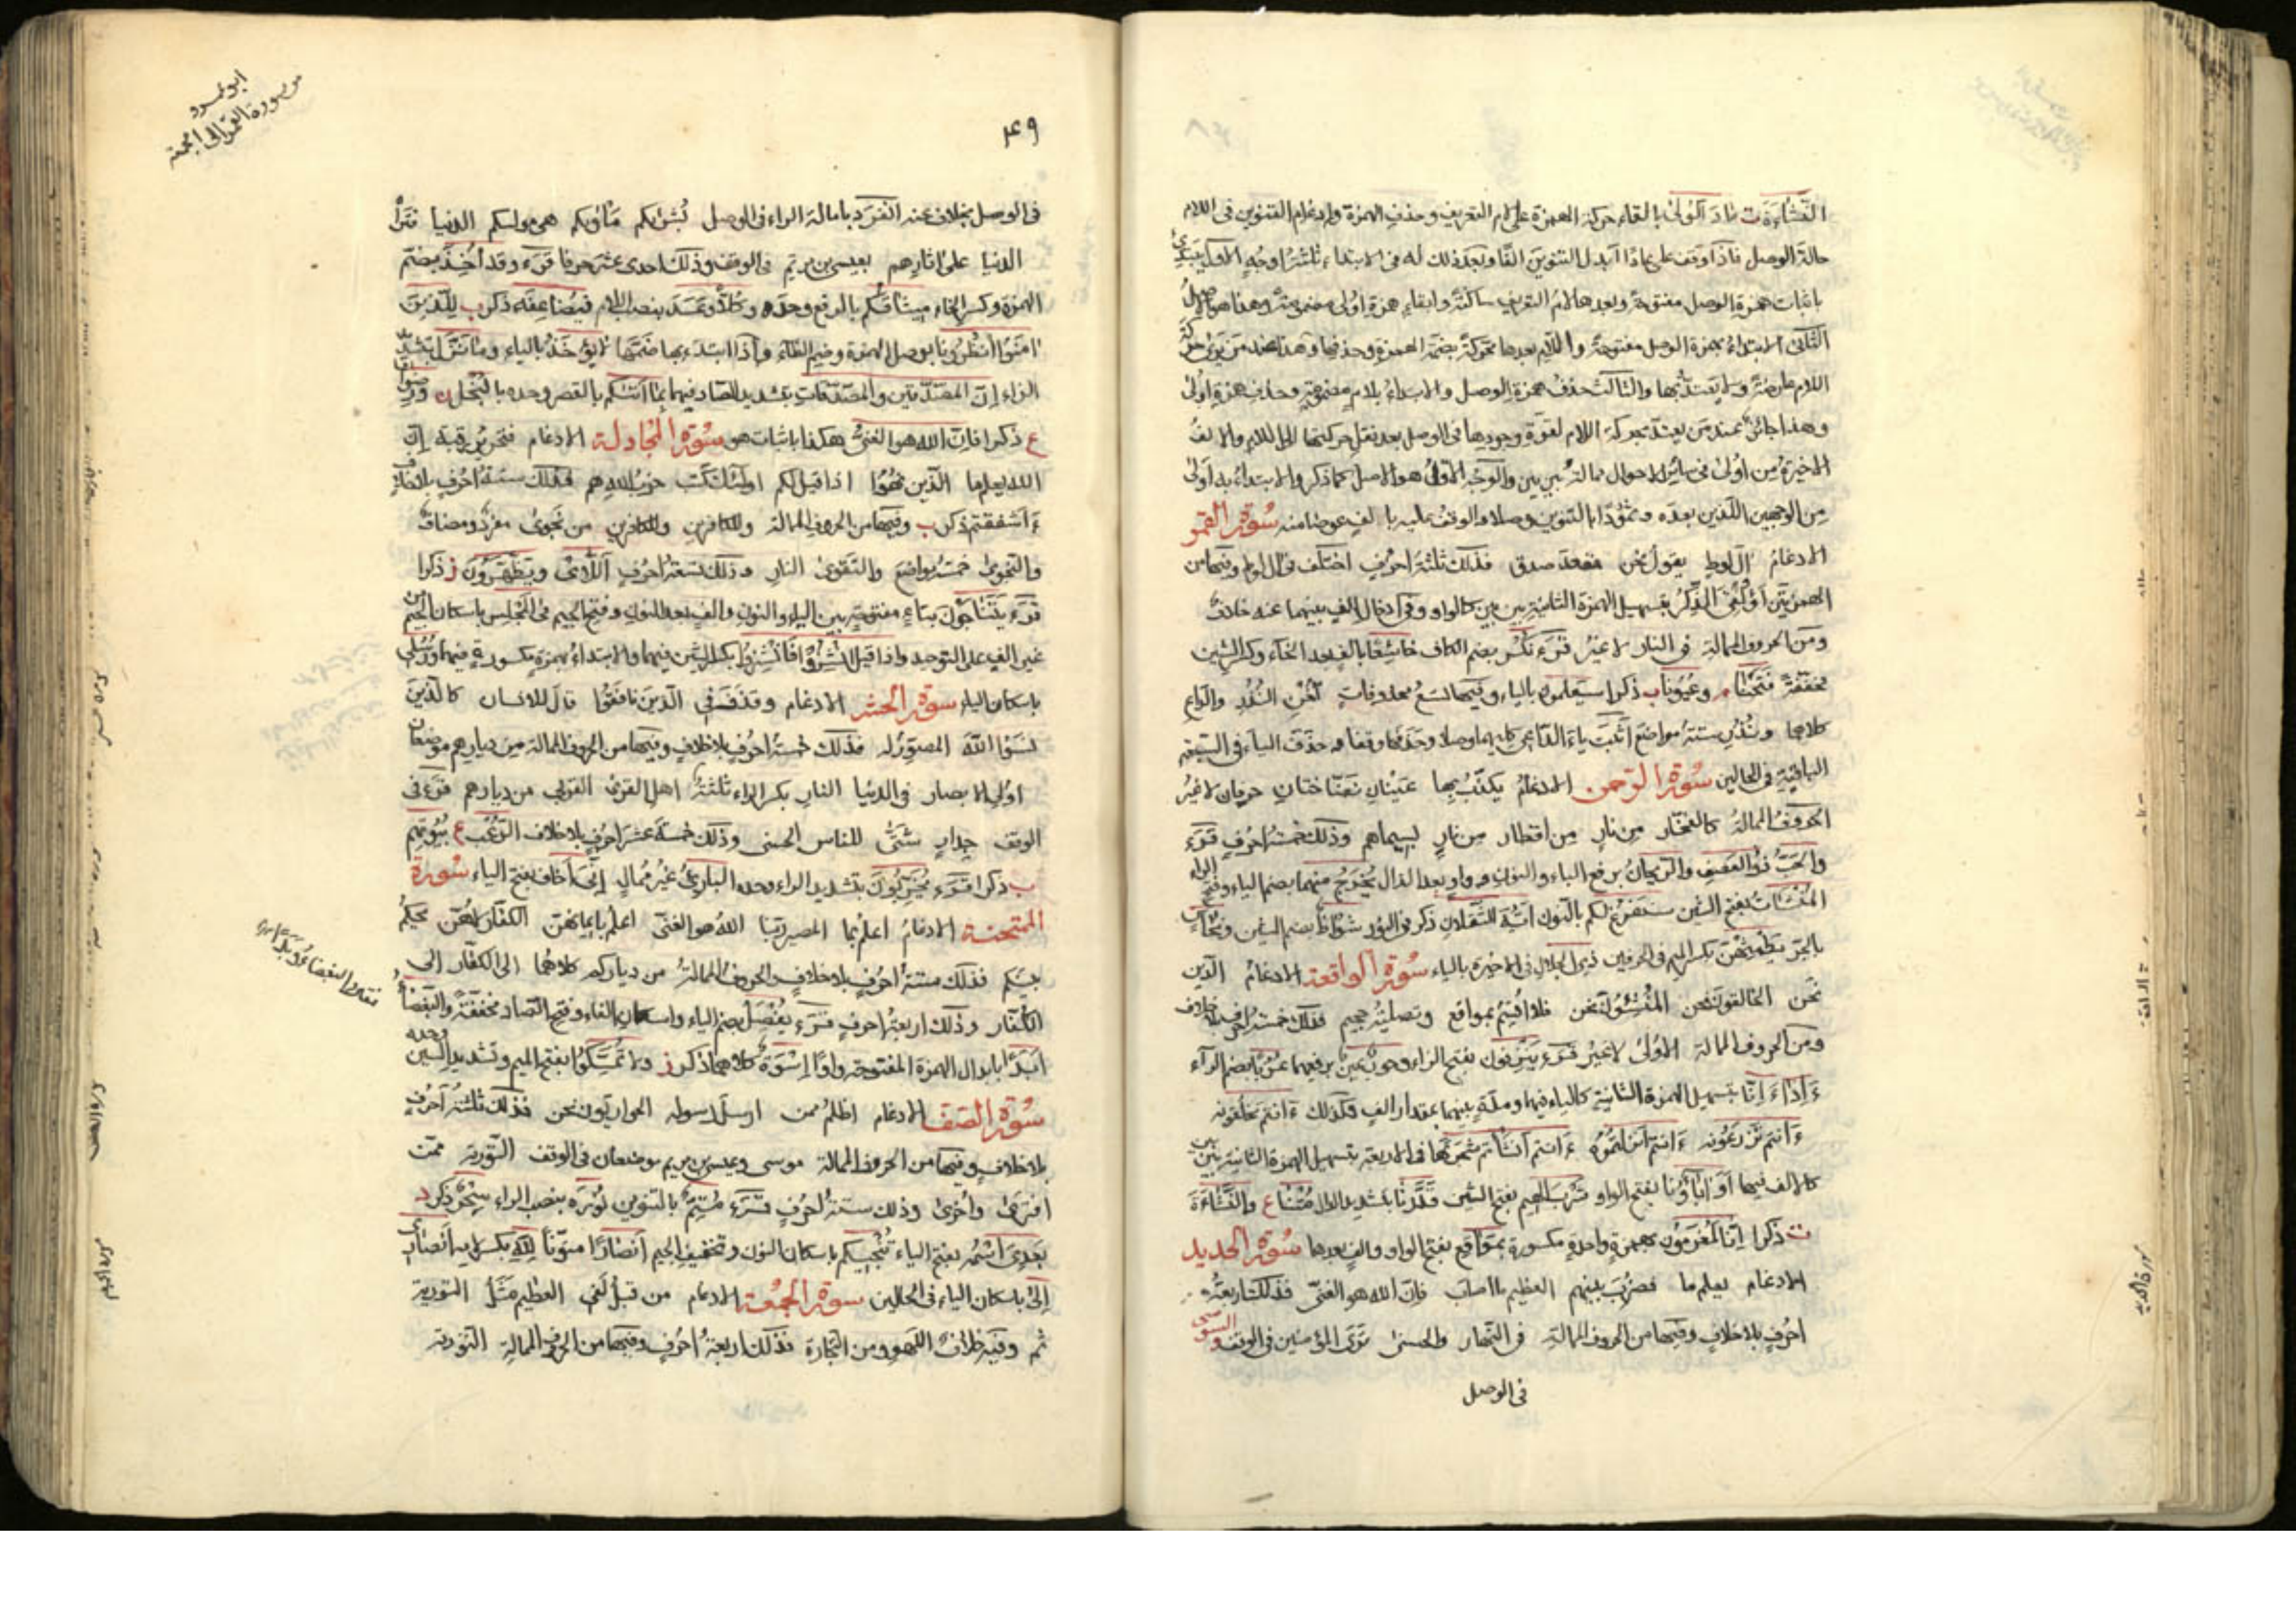 النَّشَاءَةَ ت عَادَ الُّولى بالقاء حركة الهمزة على لام التعريف وحذف الهمزة وادغام التنوين فى اللام
حالة الوصل فاذا وقف على عادًا ابدل التنوين الفًا وبعد ذلك له فى الابتداء ثلثة اوجه الاول يبتدئ
باثبات همزة الوصل مفتوحة وبعدها لام التعريف ساكنة وابقاء همزة اولى مضمومة وهذا هو الاصل
الثانى الابتداء بهمزة الوصل مفتوحة واللام بعدها محركة بضمة الهمزة وحذفها وهذا عند من يرى حركة
اللام عارضة ولم يعتد بها والثالث حذف همزة الوصل والابتداء بلام مضمومة وحذف همزة اولى
وهذا جائز عند من يعتد بحركة اللام لقوة وجودها فى الوصل بعد نقل حركتها الى اللام والالف
الاخيرة من اولى فى سائر الاحوال ممالة بين بين والوجه الاول هو الاصل كما ذكر والابتداء به اولى
من الوجهين اللذين بعده وثمودًا بالتنوين وصلا والوقف عليه بالف عوضا منه سورة القمر
الادغام آل لوط يقول نحن مقعد صدق فذلك ثلثة احرف اختلف فى آل لوط وفيها من
الهمزتين أَؤُلْقِىَ الذكر بتسهيل الهمزة الثانية بين بين كالواو وفى ادخال الف بينهما عنه خلاف
ومن الحروف الممالة فى النار لا غير قرء نُكُر بضم الكاف خاشِعًا بالف بعد الخاء وكسر الشين
مخففة فَفَتَحْنَا وعُيُونًا ب ذكرا سيعلمون بالياء وفيها تسع محذوفات تُغْنِ النُّذُر والداع
كلاهما ونُذُرِ ستة مواضع اثبت ياء الداعى كليهما وصلا وحذفها وقفا وحذف الياء فى السبعة
الباقية فى الحالين سورة الرحمن الادغام يكذب بها عينان نضاختان حرفان لا غير
الحروف الممالة كالفخار من نار من اقطار من نار بسيماهم وذلك خمسة احرف قرء
والحبُّ ذو العصف والريحان برفع الباء والنون وواو بعد الذال يُخْرَجُ منهما بضم الياء وفتح الراء
المُنْشَآت بفتح الشين سنفرغ لكم بالنون ايه الثقلان ذكر فى النور شُواظ بضم الشين ونحاس
بالجر يَطْمِثْهُنّ بكسر الميم فى الحرفين ذى الجلال فى الاخيرة بالياء سورة الواقعة الادغام الدين
نحن الخالقون نحن المنشئون نحن فلا اقسم بمواقع وتصلية جحيم فذلك خمسة احرف بلا خلاف
ومن الحروف الممالة الاولى لا غير قرء يُنْزَفون بفتح الزاء وحورٌ عينٌ برفعهما عُرُبًا بضم الراء
ءَاِذَا ءَاِنَّا بتسهيل الهمزة الثانية كالياء فيهما ومدة بينهما بمقدار الف وكذلك ءَانتم تخلقونه
ءَانتم تزرعونه ءَانتم انزلتموه ءَانتم انشأتم شجرتها فى الاربعة بتسهيل الهمزة الثانية بين بين
كالالف فيها أَوَ آبَاؤُنَا بفتح الواو شَرْبَ الهيم بفتح الشين قَدَرْنَا بتشديد الدال مُتْنَا ع والنَّشَاءَةَ
ت ذكرا إِنَّا لمغرمون بهمزة واحدة مكسورة بمَوَاقِع بفتح الواو والف بعدها سورة الحديد
الادغام يعلم ما فضرب بينهم العظيم ما اصاب فان الله هو الغنى فذلك اربعة
احرف بلا خلاف وفيها من الحروف الممالة فى النهار والحسنى ترى المؤمنين فى الوقف والسوسى
فى الوصل
٤٩
ابو عمرو
من سورة القمر الى الجمعة
فى الوصل بخلاف عنه انفرد بامالة الراء فى الوصل بُشراكم مَأْوَاكم هى مولاكم الدنيا فتراه
الدنيا على اثارهم بعيسى بن مريم فى الوقف وذلك احدى عشر حرفا قرء وقد أُخِذَ بضم
الهمزة وكسر الخاء ميثاقُكم بالرفع وحده وكلاًّ وعد بنصب اللام فيضاعفه ذكر ب للذين
امنوا انظرونا بوصل الهمزة وضم الظاء واذا ابتدء بها ضمها لا يؤخذ بالياء وما نزّل بتشديد
الزاء إن المصّدقين والمصّدقات بتشديد الصاد فيهما بما أتاكم بالقصر وحده بالبخل ورضوان
ع ذكرا فان الله هو الغنى هكذا باثبات هو سورة المجادلة الادغام فتحرير رقبة إن
الله يعلم ما الذين نهوا اذا قيل لكم اولئك كتب حزب الله هم فذلك ستة احرف بلا خلاف
ءَأشفقتم ذكر ب وفيها من الحروف الممالة وللكافرين وللكافرين من نجوى مفرد ومضاف
والنجوى خمسة مواضع والتقوى النار وذلك تسعة احرف اللائى ويظّهرون ذكرا
قرء يتناجون بتاء مفتوحة بين الياء والنون والف بعد النون وفتح الجيم فى المجلس باسكان الجيم من
غير الف على التوحيد واذا قيل انشزوا فانشزوا بكسر الشين فيهما والابتداء بهمزة مكسورة فيهما ورسلى
باسكان الياء سورة الحشر الادغام وقذف فى الذين نافقوا قال للانسان كالذين
نسوا الله المصور له فذلك خمسة احرف بلا خلاف وفيها من الحروف الممالة من ديارهم موضعان
اولى الابصار فى الدنيا النار بكسر الراء ثلثة اهل القرى القربى من ديارهم قرء فى
الوقف جدار شتى للناس الحسنى وذلك خمسة عشر احرف بلا خلاف الرعب ع بيوتهم
ب ذكرا قرء يخرّبون بتشديد الراء وحده البارئ غير ممال إنّى اخاف بفتح الياء سورة
الممتحنة الادغام اعلم بما المصير ربنا الله هو الغنى اعلم بايمانهن الكفار لا هن يحكم
بينكم فذلك ستة احرف بلا خلاف والحروف الممالة من دياركم كلاهما الى الكفار الى
الكفار وذلك اربعة احرف قرء يُفْصَل بضم الياء واسكان الفاء وفتح الصاد مخففة والبغضاءُ
ابدًا بابدال الهمزة المفتوحة واوًا إسوة كلاهما ذكر ولا تمسّكوا بفتح الميم وتشديد السين وحده
سورة الصف الادغام اظلم ممن ارسل رسوله الحواريون نحن فذلك ثلثة احرف
بلا خلاف وفيها من الحروف الممالة موسى وعيسى بن مريم موضعان فى الوقف التورية ممن
افترى واخرى وذلك ستة احرف قرء مُتِمٌّ بالتنوين نورَه بنصب الراء سِحْر ذكر
بعدىَ اسمه بفتح الياء تُنْجِيكم باسكان النون وتخفيف الجيم انصارًا منونًا لله بكسر لامه انصارى
إلى باسكان الياء فى الحالين سورة الجمعة الادغام من قبل لفى العظيم مثل التورية
ثم وفيه خلاف اللهو ومن التجارة فذلك اربعة احرف وفيها من الحروف الممالة التورية